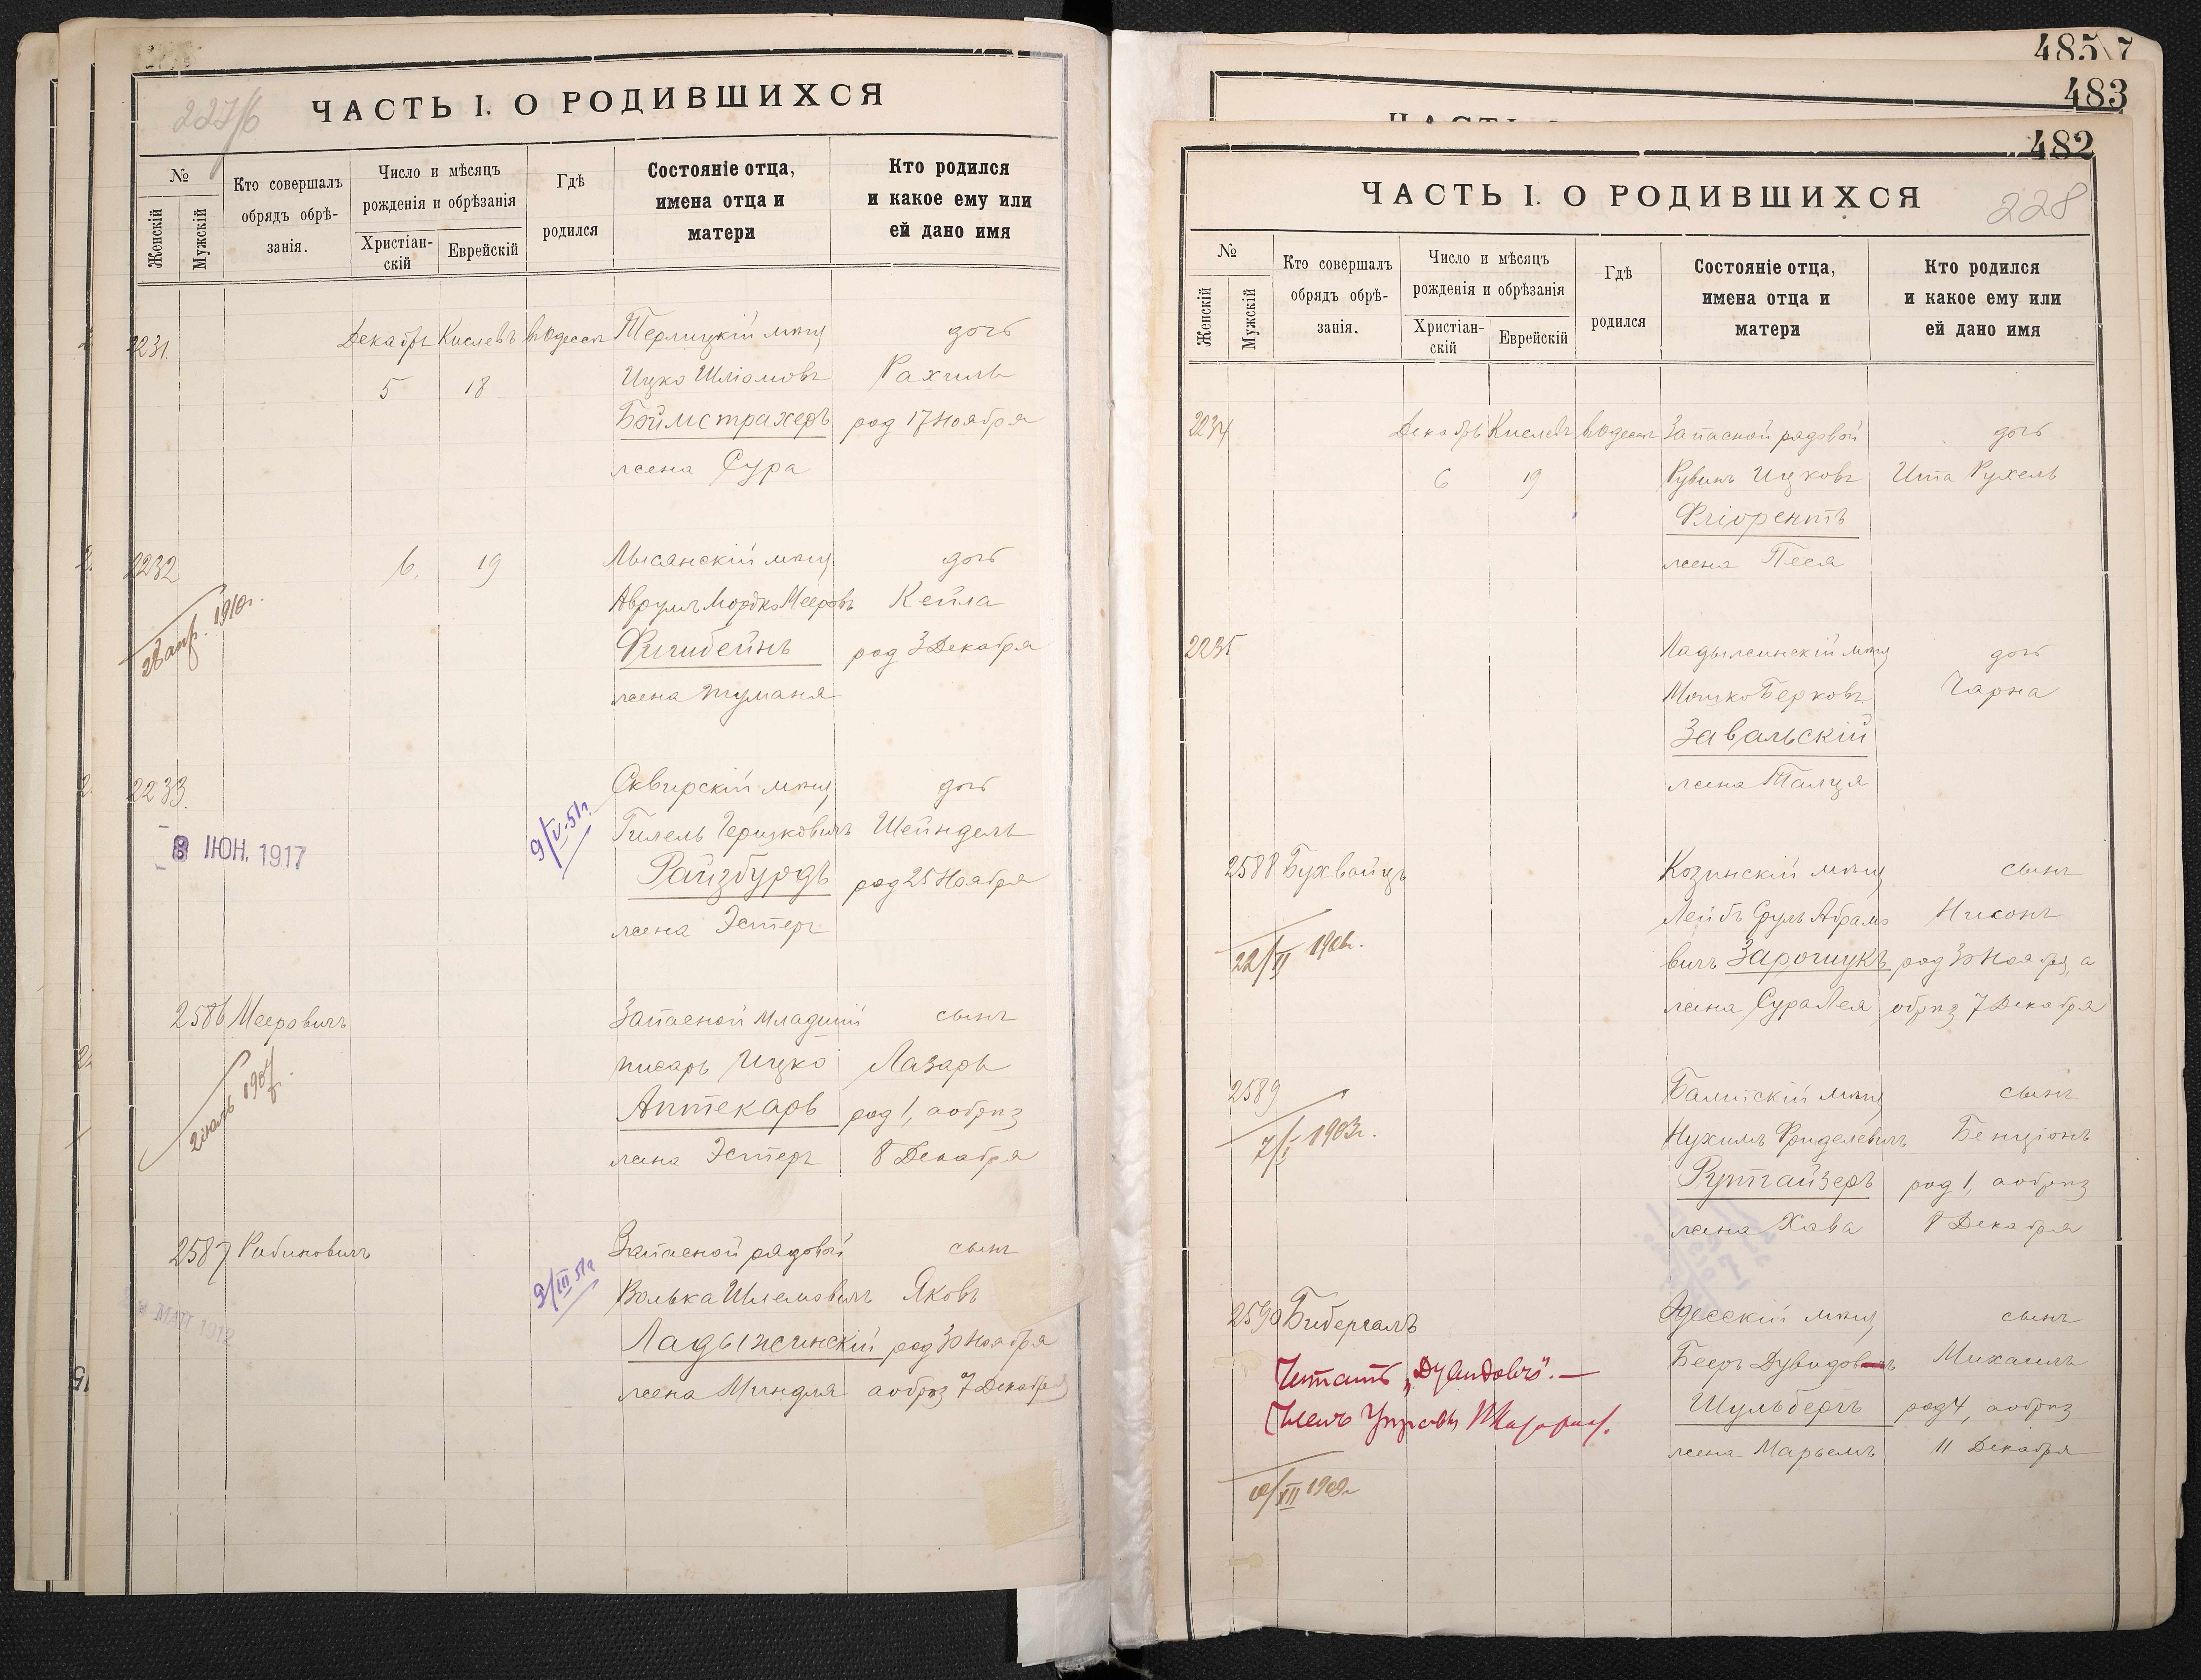 227/6
ЧАСТЬ I. О РОДИВШИХСЯ
№
Женскій
Мужскій
Кто совершалъ
обрядъ обрѣ-
занія.
Число и мѣсяцъ
рожденія и обрѣзанія
Христіан-
скій
Еврейскій
Гдѣ
родился
Состояніе отца,
имена отца и
матери
Кто родился
и какое ему или
ей дано имя
2231. Декабрь Кислевъ въ Одессѣ Терлицкій мѣщ дочь
5 18 Ицко Шліомовъ Рахиль
Боймстрахеръ род 17 Ноября
жена Сура
2232 6. 19 Лысянскій мѣщ. дочь
28 апр. 1910г. Аврумъ Мордко Мееровъ Кейла
Фигибейнъ род 3 Декабря
жена Туманя
2233. Сквирскій мѣщ дочь
8 ІЮН. 1917 9/V-51г. Гилель Герцковичъ Шейндель
Райзбурдъ род 25 Ноября
жена Эстеръ
2586 Мееровичъ Запасной младшій сынъ
писарь Ицко Лазарь
Аптекарь род 1, а обрѣз
жена Эстеръ 8 Декабря
2587 Рабиновичъ Запасной рядовой сынъ
9/III 51г Волька Шлемовичъ Яковъ
МАЯ 1912 Ладыжинскій род 30 Ноября
жена Миндля а обрѣз 7 Декабря
485
7
483
482
ЧАСТЬ I. О РОДИВШИХСЯ
228
№
Женскій
Мужскій
Кто совершалъ
обрядъ обрѣ-
занія.
Число и мѣсяцъ
рожденія и обрѣзанія
Христіан-
скій
Еврейскій
Гдѣ
родился
Состояніе отца,
имена отца и
матери
Кто родился
и какое ему или
ей дано имя
2234 Декабрь Кислевъ въ Одессѣ Запасной рядовой дочь
6 19 Рувинъ Ицковъ Ита Рухель
Фліорентъ
жена Песя
2235 Ладыжинскій мѣщ дочь
Мошко Берковъ Чарна
Завальскій
жена Талця
2588 Бухвайцъ Козинскій мѣщ сынъ
Лейбъ Сруль Абрамо Нисонъ
22/II 1906г. вичъ Зарощукъ род 30 Ноября, а
жена Сура Лея обрѣз 7 Декабря
2589 Балтскій мѣщ сынъ
7/I 1903г. Нухимъ Фриделевичъ Бенціонъ
Рутгайзеръ род 1, а обрѣз
жена Хава 8 Декабря
2590 Бибергалъ Одесскій мѣщ сынъ
Читать „Дувидовъ". — Беръ Дувидовичъ Михаилъ
Членъ Управы Шульбергъ род 4, а обрѣз
жена Марьемъ 11 Декабря
XII 1909г